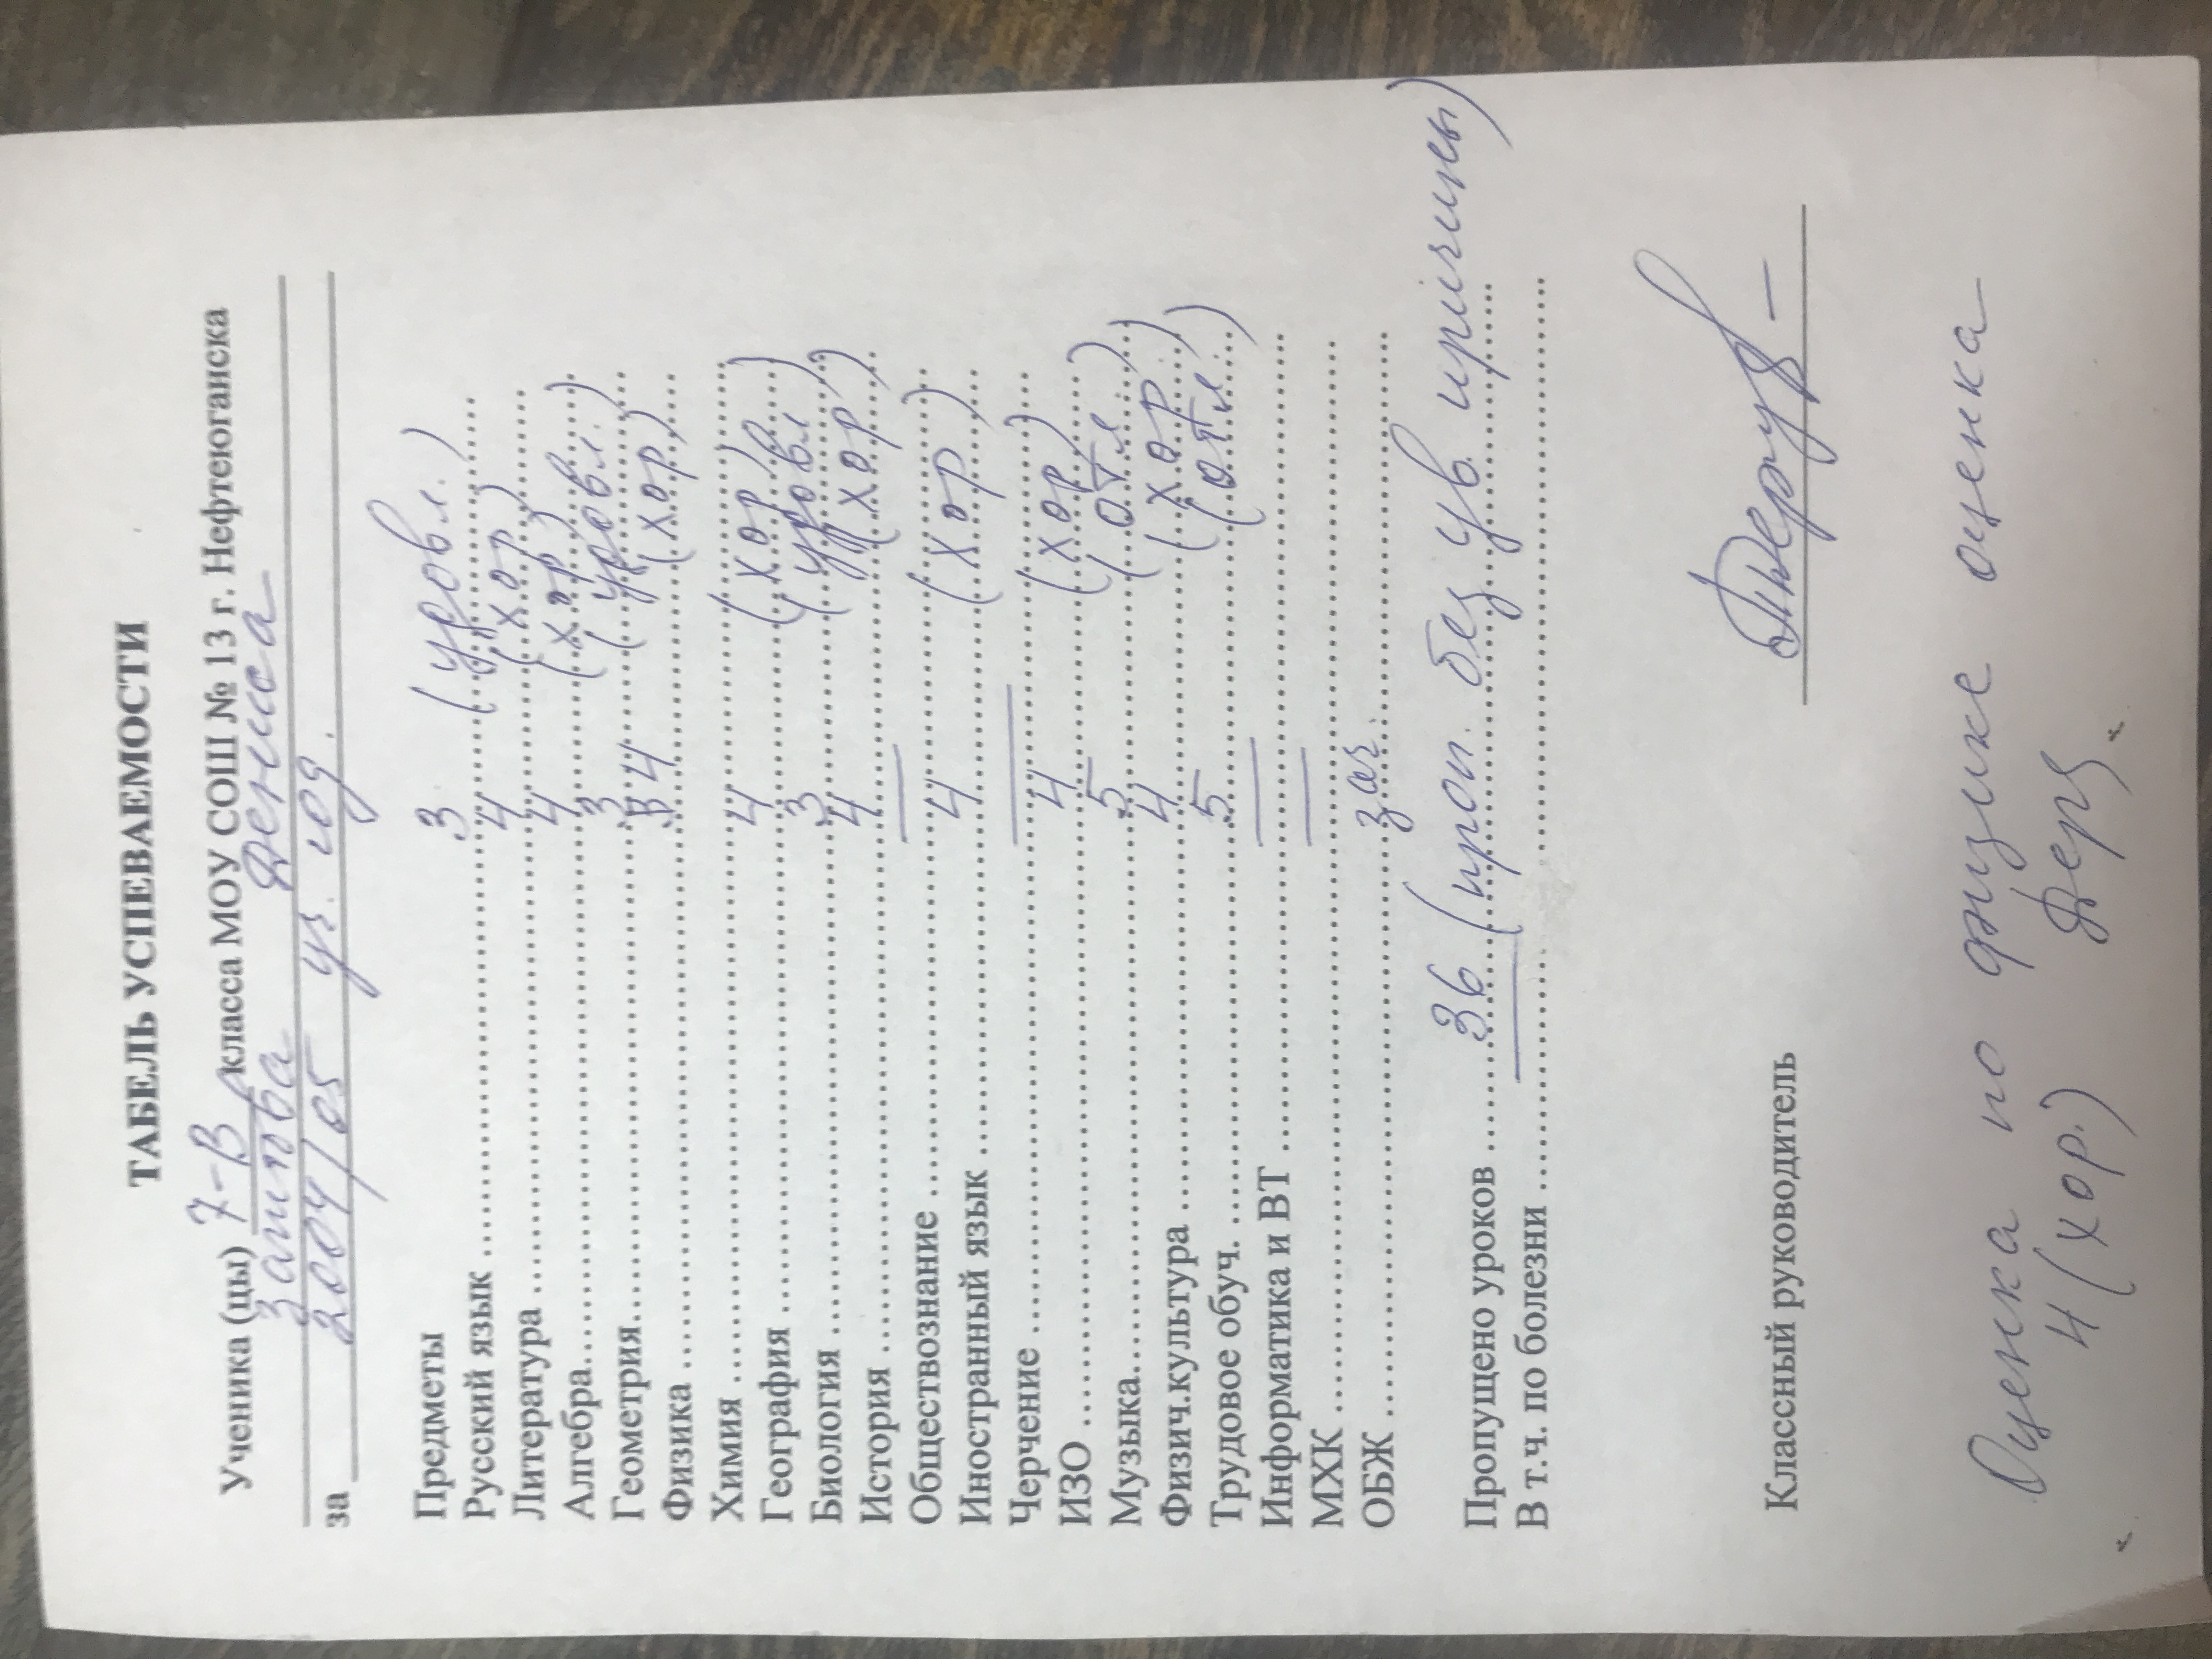 ТАБЕЛЬ УСПЕВАЕМОСТИ
Ученика (цы) 7-В класса МОУ СОШ № 13 г. Нефтеюганска
Заитова Дениса
за 2004/05 уч. год.
Предметы
Русский язык 3 (удовл.)
Литература 4 (хор)
Алгебра 4 (хор)
Геометрия 3 (удовл.)
Физика 3 4 (хор)
Химия
География 4 (хор)
Биология 3 (удовл)
История 4 (хор)
Обществознание —
Иностранный язык 4 (хор)
Черчение —
ИЗО 4 (хор)
Музыка 5 (отл.)
Физич.культура 4 (хор.)
Трудовое обуч. 5 (отл.)
Информатика и ВТ —
МХК —
ОБЖ зач.
Пропущено уроков 36 (проп. без ув. причины)
В т.ч. по болезни —
Классный руководитель
Оценка по физике оценка
4 (хор.)